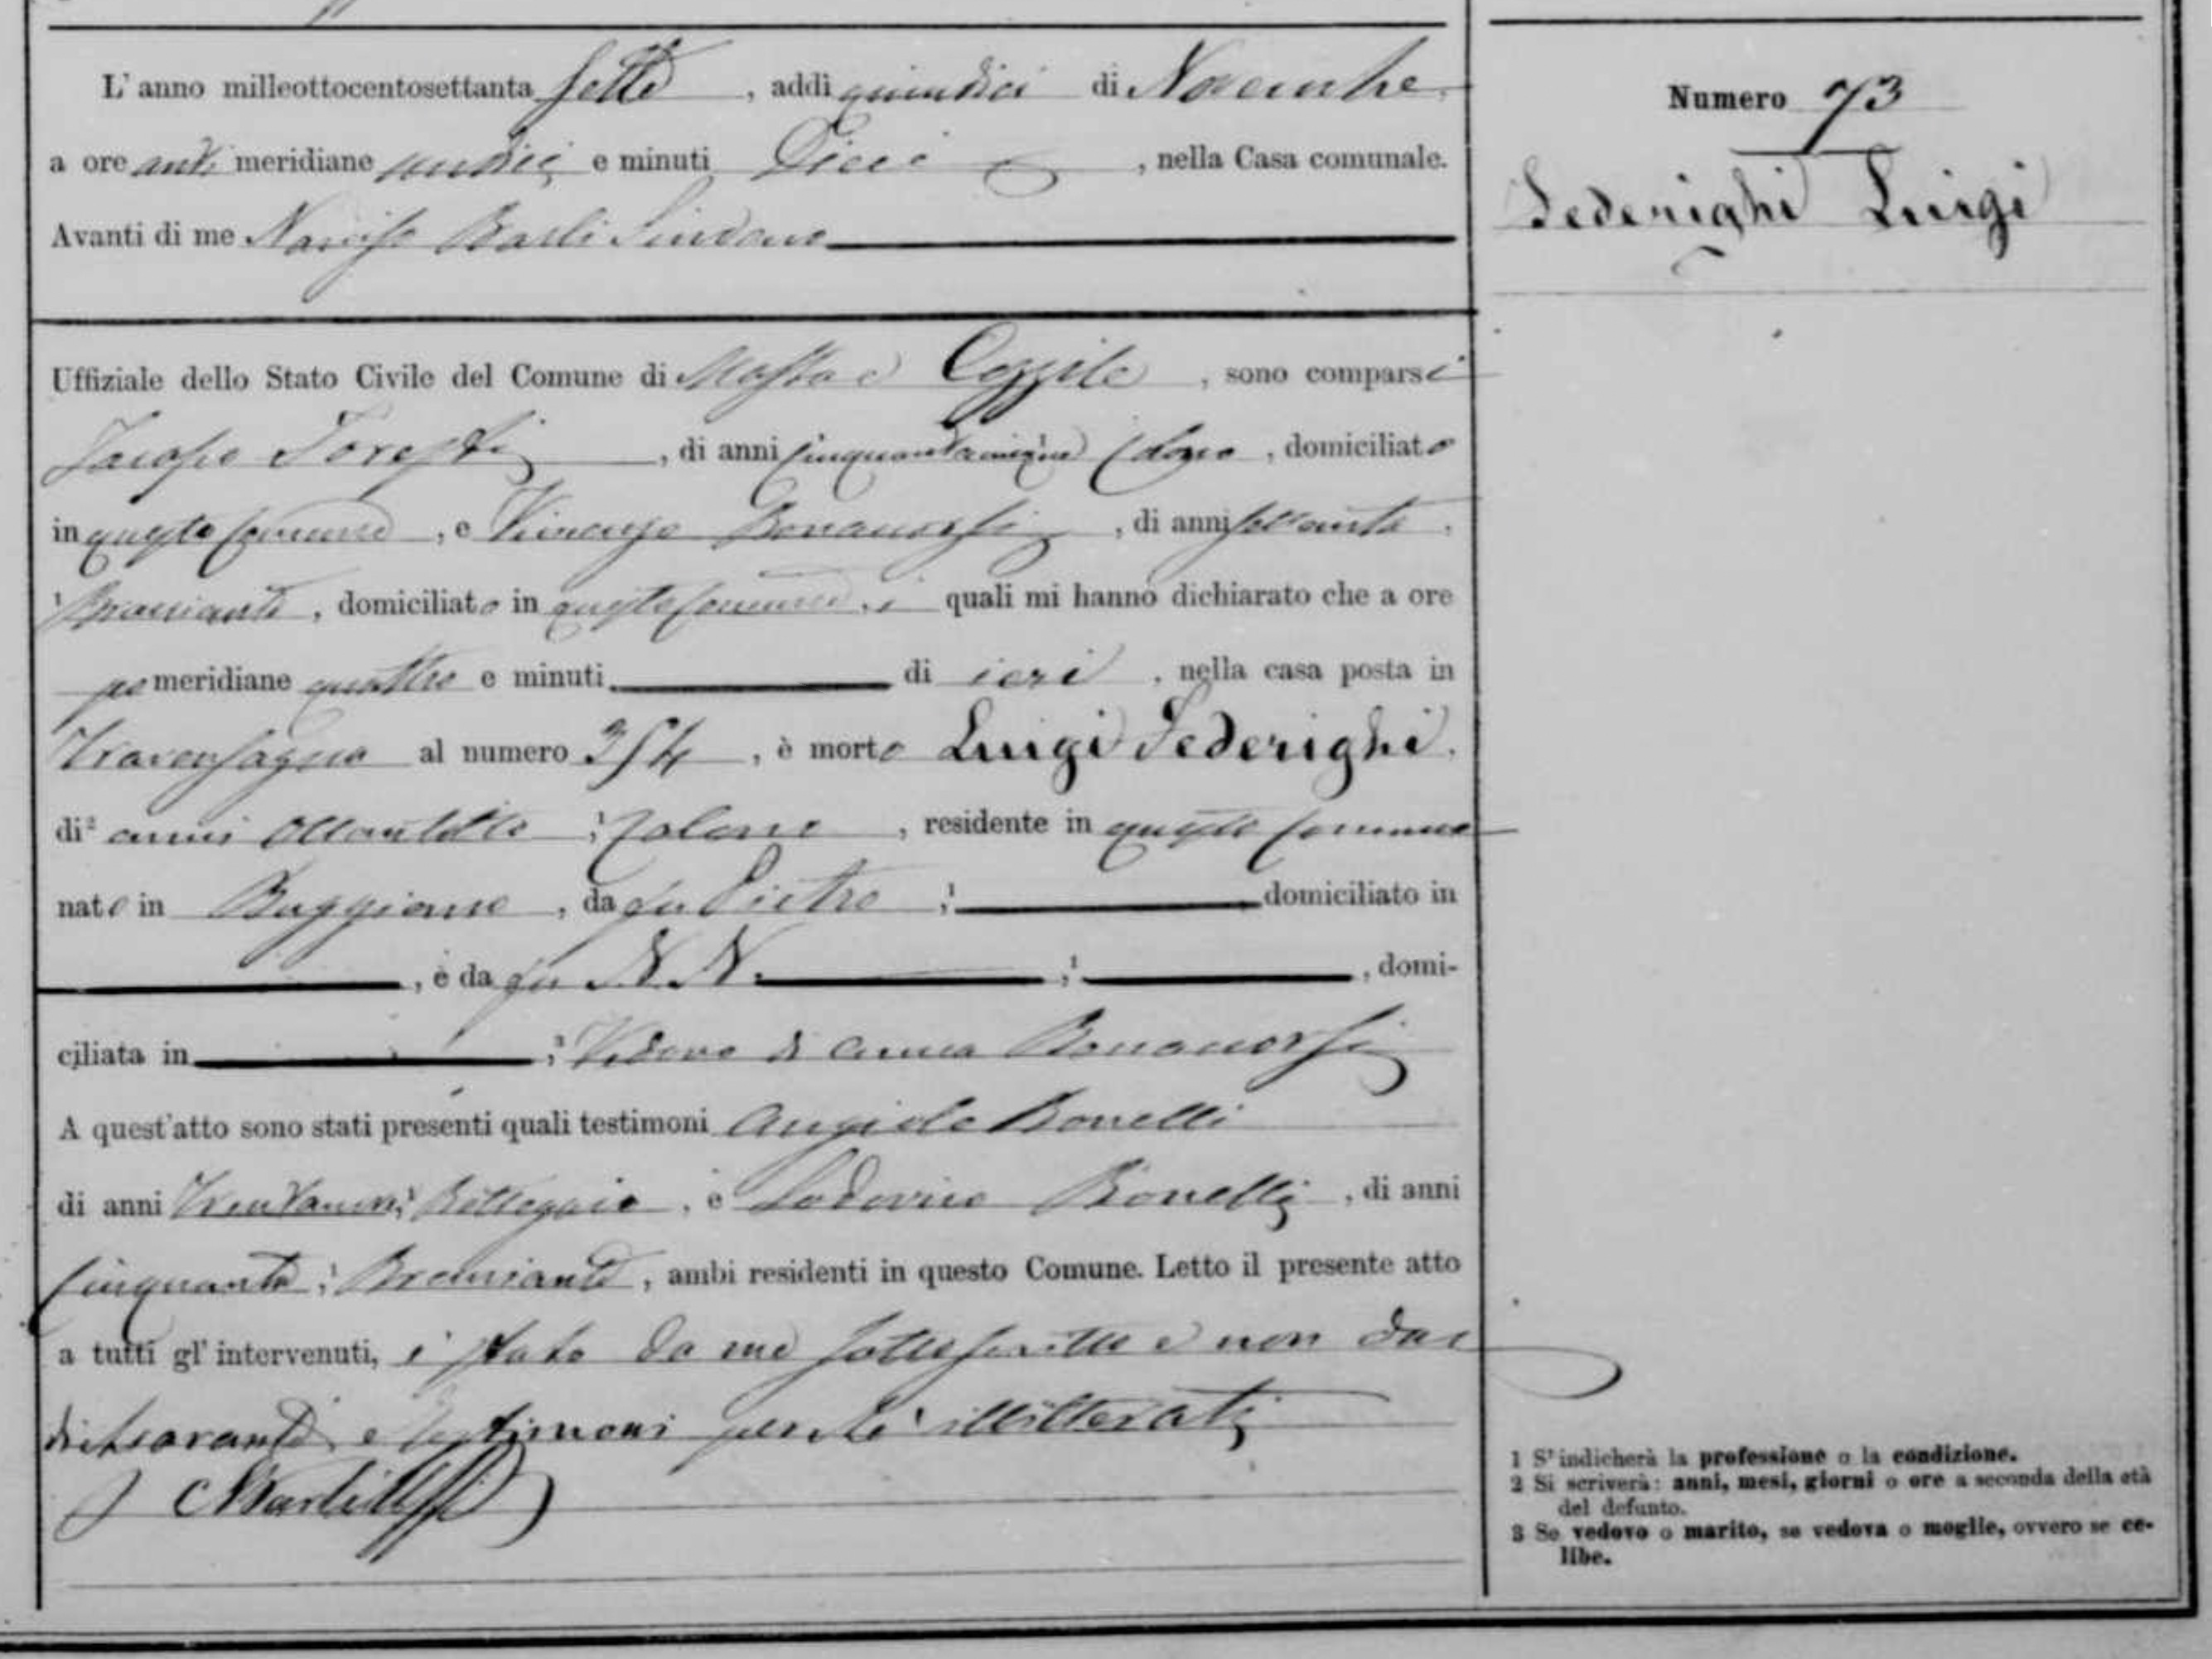 L'anno milleottocentosettanta sette, addi quindici di Novembre
a ore anti meridiane undici e minuti Dieci, nella Casa comunale.
Avanti di me Narciso Sindaco
Uffiziale dello Stato Civile del Comune di Massa e Cozzile, sono comparsi
Jacopo Foresti, di anni cinquantacinque, domiciliato
in questo comune, e Vincenzo Bonamorsi, di anni settanta,
¹ Bracciante, domiciliato in questo comune, i quali mi hanno dichiarato che a ore
po meridiane quattro e minuti di ieri, nella casa posta in
Traversagna al numero 354, è morto Luigi Federighi.
di² anni ottantotto ;¹ colono, residente in questo comune
nato in Buggiano, da fu Pietro ;¹ domiciliato in
, e da fu N. N. ;¹ , domi-
ciliata in ;³ Vedovo di Anna Bonamorsi
A quest'atto sono stati presenti quali testimoni Angiolo Bonelli
di anni ;¹ Bottegaio, e Lodovico Bonelli, di anni
cinquanta ;¹ Bracciante, ambi residenti in questo Comune. Letto il presente atto
a tutti gl'intervenuti, è stato da me sottoscritto e non dai
dichiaranti e testimoni perché illitterati
Numero 73
Federighi Luigi
1 S'indicherà la professione o la condizione.
2 Si scriverà: anni, mesi, giorni o ore a seconda della età
del defunto.
3 Se vedovo o marito, se vedova o moglie, ovvero se ce-
libe.